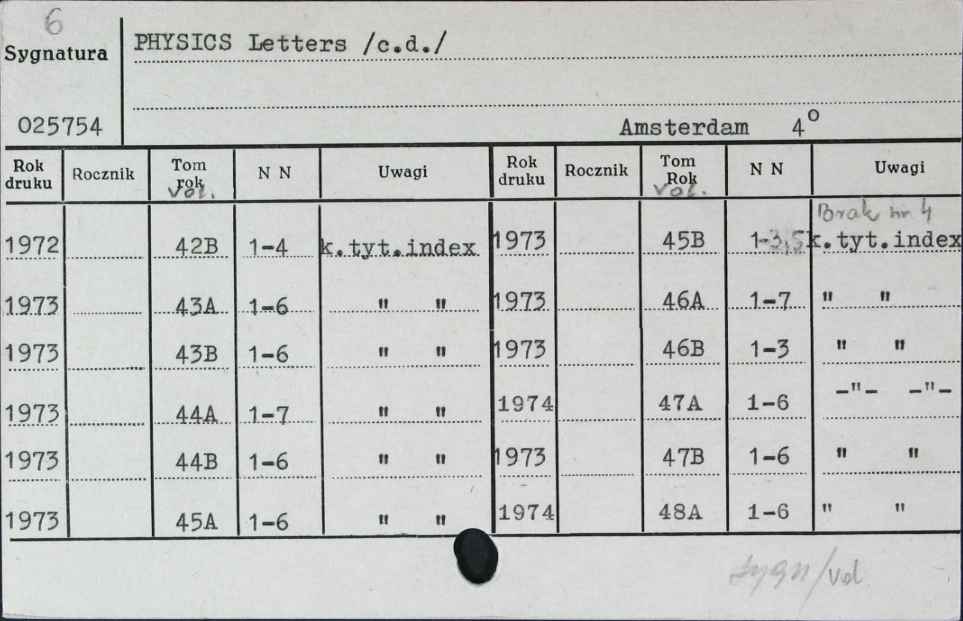 6
Sygnatura PHYSICS Letters /c.d./
025754 Amsterdam 4°
Rok druku Rocznik Tom rok vol. N N Uwagi Rok druku Rocznik Tom Rok vol. N N Uwagi
Brak nr 4
1972 42B 1-4 k.tyt.index 1973 45B 1-3,5 k.tyt.index
1973 43A 1-6 " " 1973 46A 1-7 " "
1973 43B 1-6 " " 1973 46B 1-3 " "
1973 44A 1-7 " " 1974 47A 1-6 -"- -"-
1973 44B 1-6 " " 1973 47B 1-6 " "
1973 45A 1-6 " " 1974 48A 1-6 " "
sygn/vol